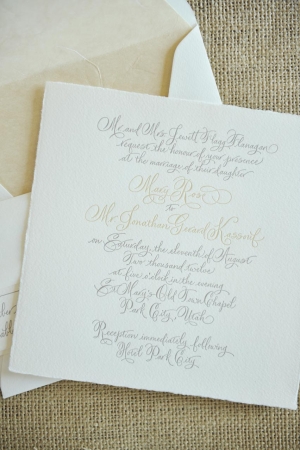 Mr. and Mrs. Jewett Flagg Flanagan
request the honour of your presence
at the marriage of their daughter
Mary Rose
to
Mr. Jonathan Gerard
on Saturday, the eleventh of August
Two thousand twelve
at five o'clock in the evening
St. Mary's Old Town Chapel
Park City, Utah
Reception immediately following
Hotel Park City.